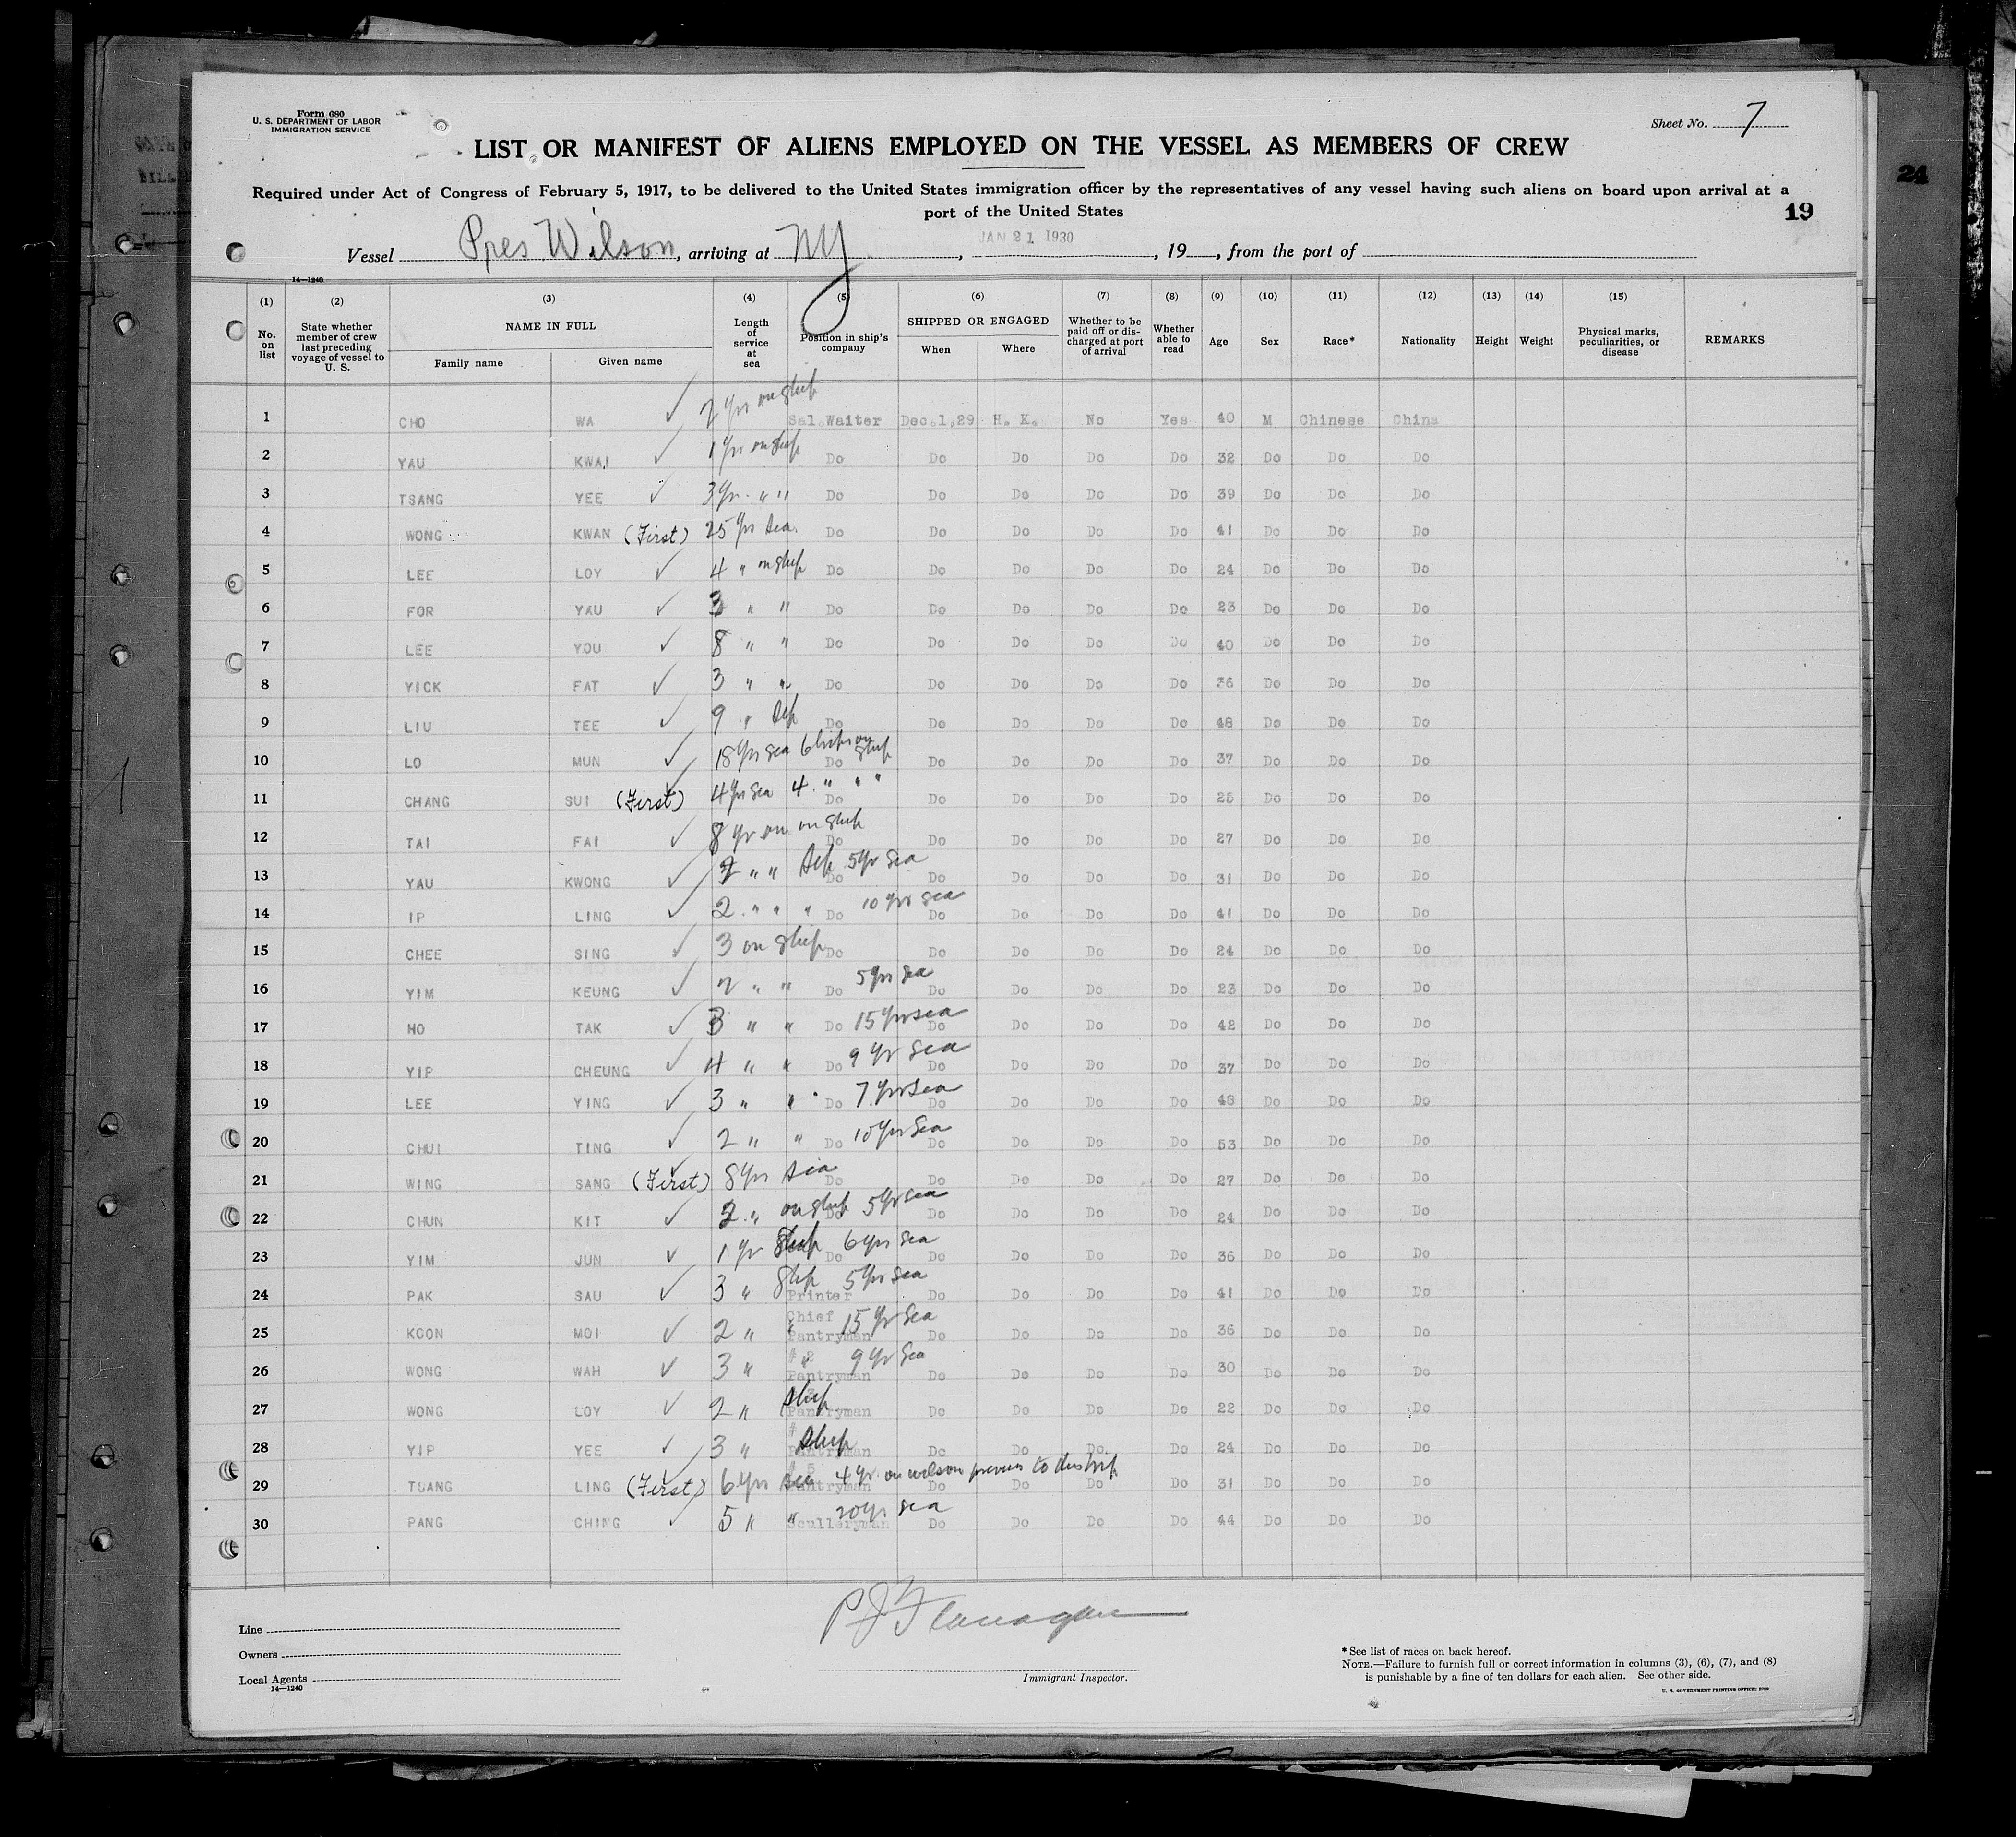 Form 680
U. S. DEPARTMENT OF LABOR
IMMIGRATION SERVICE
Sheet No. 7
LIST OR MANIFEST OF ALIENS EMPLOYED ON THE VESSEL AS MEMBERS OF CREW
24
Required under Act of Congress of February 5, 1917, to be delivered to the United States immigration officer by the representatives of any vessel having such aliens on board upon arrival at a
port of the United States
19
Vessel Pres Wilson, arriving at NY, JAN 21 1930, 19, from the port of
14—1240
(1) (2) (3) (4) (5) (6) (7) (8) (9) (10) (11) (12) (13) (14) (15)
No. on list State whether member of crew last preceding voyage of vessel to U. S. NAME IN FULL Family name Given name Length of service at sea Position in ship's company SHIPPED OR ENGAGED When Where Whether to be paid off or discharged at port of arrival Whether able to read Age Sex Race* Nationality Height Weight Physical marks, peculiarities, or disease REMARKS
1 CHO WA ✓ yrs on ship Sal. Waiter Dec.1,29 H. K. No Yes 40 M Chinese China
2 YAU KWAI ✓ 1 yrs on ship Do Do Do Do Do 32 Do Do Do
3 TSANG YEE ✓ 3 yr. " " Do Do Do Do Do 39 Do Do Do
4 WONG KWAN (First) 25 yrs sea. Do Do Do Do Do 41 Do Do Do
5 LEE LOY ✓ 4 " on ship Do Do Do Do Do 24 Do Do Do
6 FOR YAU ✓ 3 " " Do Do Do Do Do 23 Do Do Do
7 LEE YOU ✓ 8 " " Do Do Do Do Do 40 Do Do Do
8 YICK FAT ✓ 3 " " Do Do Do Do Do 36 Do Do Do
9 LIU TEE ✓ 9 " ship Do Do Do Do Do 48 Do Do Do
10 LO MUN ✓ 18 yrs sea 6 trips on ship Do Do Do Do Do 37 Do Do Do
11 CHANG SUI (First) ✓ 4 yrs sea 4 " " " Do Do Do Do Do 25 Do Do Do
12 TAI FAI ✓ 8 yr on on ship Do Do Do Do Do 27 Do Do Do
13 YAU KWONG ✓ " " ship 5 yr sea Do Do Do Do Do 31 Do Do Do
14 IP LING ✓ 2 " " " 10 yrs sea Do Do Do Do Do 41 Do Do Do
15 CHEE SING ✓ 3 on ship Do Do Do Do Do 24 Do Do Do
16 YIM KEUNG ✓ " " 5 yrs sea Do Do Do Do Do 23 Do Do Do
17 HO TAK ✓ 3 " " 15 yrs sea Do Do Do Do Do 42 Do Do Do
18 YIP CHEUNG ✓ 4 " " 9 yr sea Do Do Do Do Do 37 Do Do Do
19 LEE YING ✓ 3 " " 7 yrs sea Do Do Do Do Do 48 Do Do Do
20 CHUI TING ✓ 2 " " 10 yrs sea Do Do Do Do Do 53 Do Do Do
21 WING SANG (First) ✓ 8 yrs sea Do Do Do Do Do 27 Do Do Do
22 CHUN KIT ✓ 2 " on ship 5 yr sea Do Do Do Do Do 24 Do Do Do
23 YIM JUN ✓ 1 yr ship 6 yrs sea Do Do Do Do Do 36 Do Do Do
24 PAK SAU ✓ 3 " ship 5 yrs sea Printer Do Do Do Do 41 Do Do Do
25 KOON MOI ✓ 2 " " 15 yr sea Chief Pantryman Do Do Do Do 36 Do Do Do
26 WONG WAH ✓ 3 " " 9 yr sea # 2 Pantryman Do Do Do Do 30 Do Do Do
27 WONG LOY ✓ 2 " ship Pantryman Do Do Do Do 22 Do Do Do
28 YIP YEE ✓ 3 " ship # Pantryman Do Do Do Do 24 Do Do Do
29 TSANG LING (First) 6 yrs sea 4 yr. on wilson previous to this trip # 5 Pantryman Do Do Do Do 31 Do Do Do
30 PANG CHING ✓ 5 " " 20 yr sea Sculleryman Do Do Do Do 44 Do Do Do
P J Flanagan
Line
Owners
Local Agents
14—1240
Immigrant Inspector.
* See list of races on back hereof.
NOTE.—Failure to furnish full or correct information in columns (3), (6), (7), and (8)
is punishable by a fine of ten dollars for each alien. See other side.